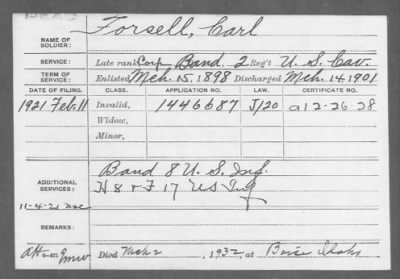 NAME OF SOLDIER: Forsell, Carl
SERVICE: Late rank Corp Band, 2 Reg't U. S. Cav.
TERM OF SERVICE: Enlisted Mch. 15, 1898 Discharged Mch. 14, 1901
DATE OF FILING. CLASS. APPLICATION NO. LAW. CERTIFICATE NO.
1921 Feb. 11 Invalid, 1446687 J120 a12-26-28
Widow,
Minor,
ADDITIONAL SERVICES: Band 8 U. S. Inf.
H 8 & F 17 US Inf
11-4-21
REMARKS:
Died 1932, at Boise Idaho